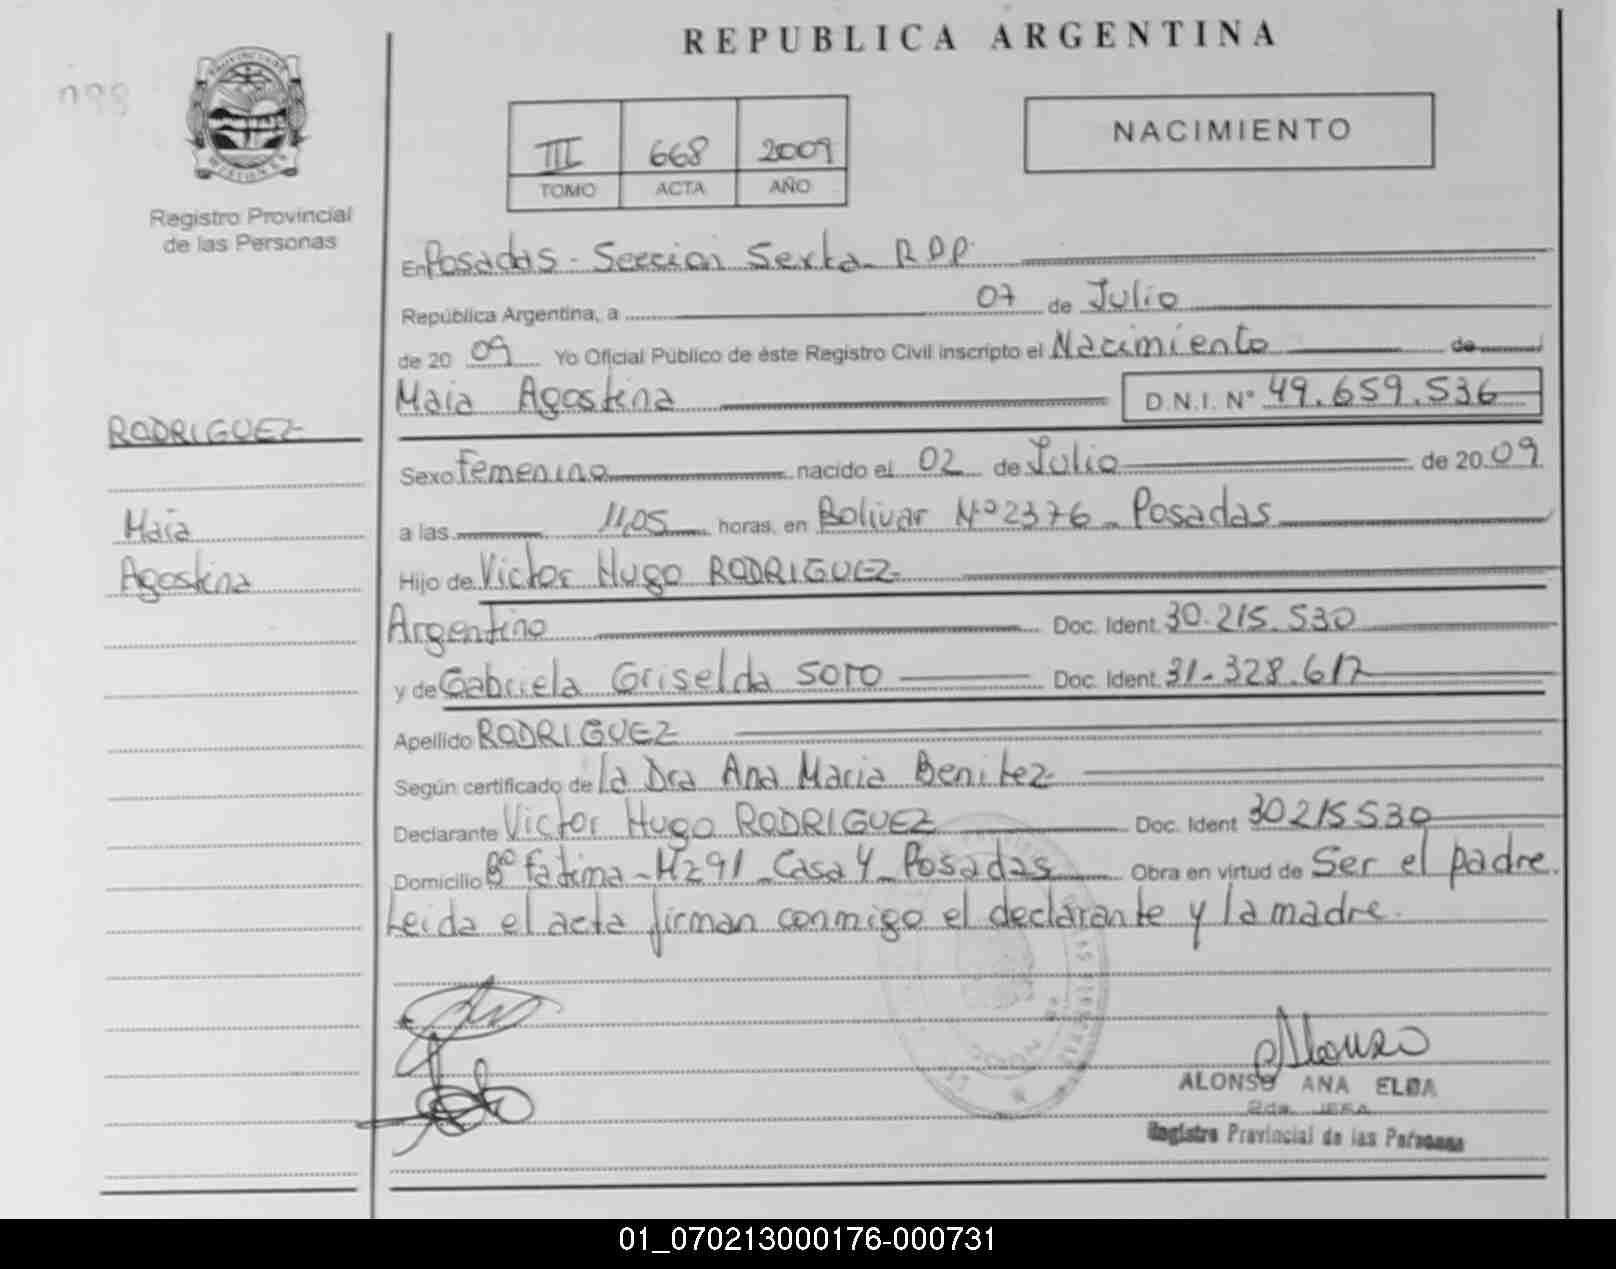 REPUBLICA ARGENTINA
NACIMIENTO
III 668 2009
TOMO ACTA AÑO
PROVINCIA DE
MISIONES
Registro Provincial
de las Personas
RODRIGUEZ
Maia
Agostina
En Posadas - Seccion Sexta - R P P.
República Argentina, a 07 de Julio
de 20 09 Yo Oficial Público de éste Registro Civil inscripto el Nacimiento de
Maia Agostina D.N.I. N° 49.659.536
Sexo Femenino nacido el 02 de Julio de 20 09
a las 11,05 horas, en Bolivar Nº 2376 - Posadas
Hijo de Victor Hugo RODRIGUEZ
Argentino Doc. Ident. 30.215.530
y de Gabriela Griselda SOTO Doc. Ident. 31.328.617
Apellido RODRIGUEZ
Según certificado de la Dra Ana Maria Benitez
Declarante Victor Hugo RODRIGUEZ Doc. Ident 30215530
Domicilio Bº Fatima - Mz 91 - Casa 4 - Posadas Obra en virtud de Ser el padre.
Leida el acta firman conmigo el declarante y la madre.
Alonso
ALONSO ANA ELBA
2da. JEFA
Registro Provincial de las Personas
01_070213000176-000731